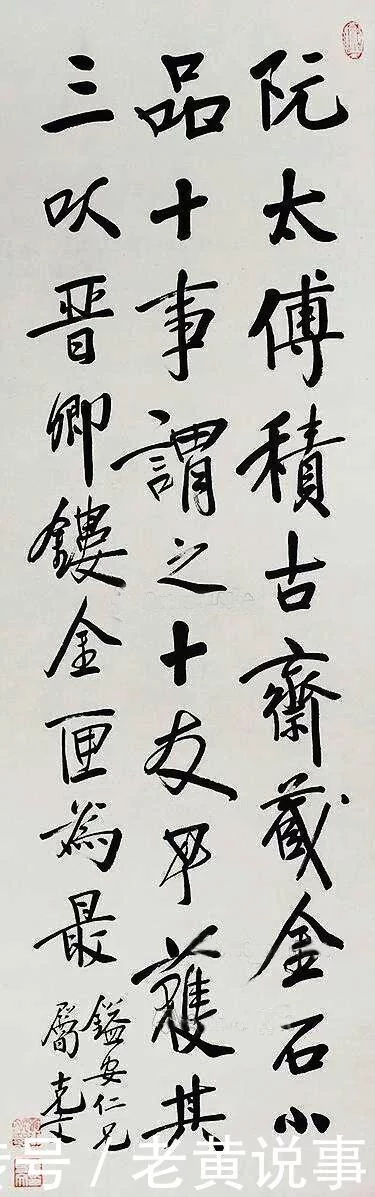 阮太傅積古齋藏金石小
品十事謂之十友予獲其
三㕥晋卿鏤金匣為最
鎰安仁兄
屬克文
号/老黄说事